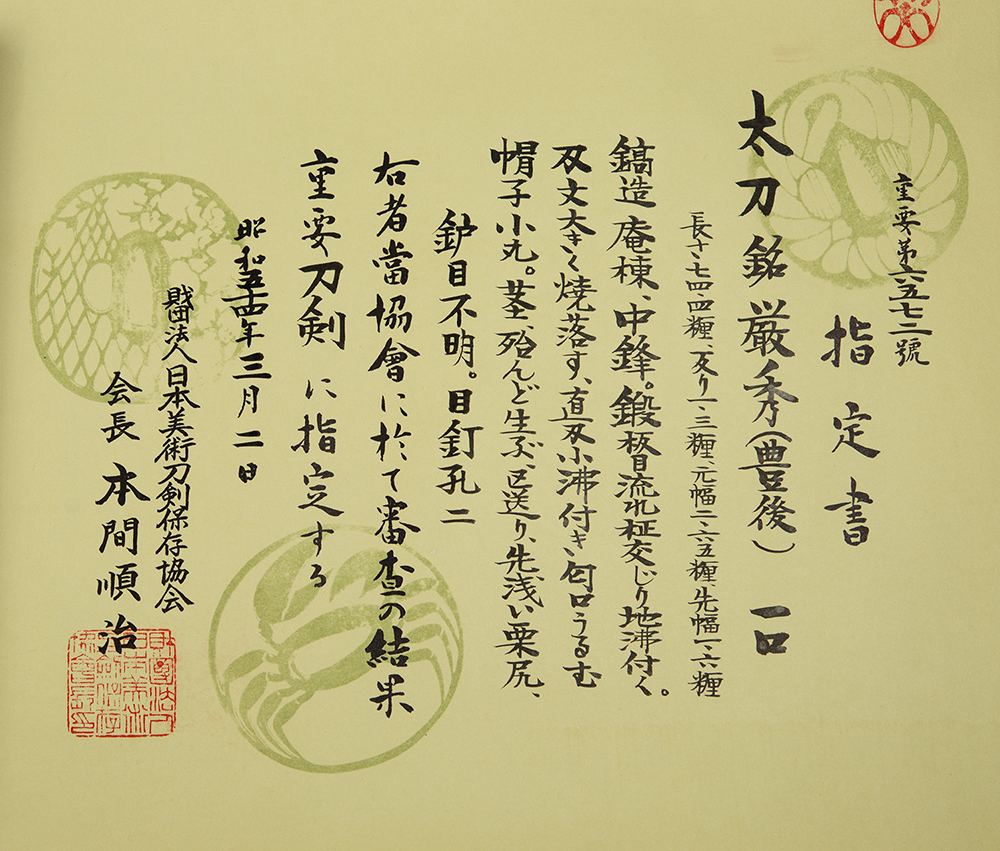 重要第六五七二號
指定書
太刀 銘 厳秀(豊後) 一口
長さ七四・四糎、反り一・三糎、元幅二・六五糎、先幅一・六糎
鎬造、庵棟、中鋒。鍛板目流れ柾交じり地沸付く。
刃文大きく焼落す、直刃小沸付き、匂口うるむ
帽子小丸。茎、殆んど生ぶ、区送り、先浅い栗尻、
鈩目不明。目釘孔二
右者當協會に於て審査の結果
重要刀剣に指定する
昭和五十四年三月二日
財団法人日本美術刀剣保存協会
会長 本間順治